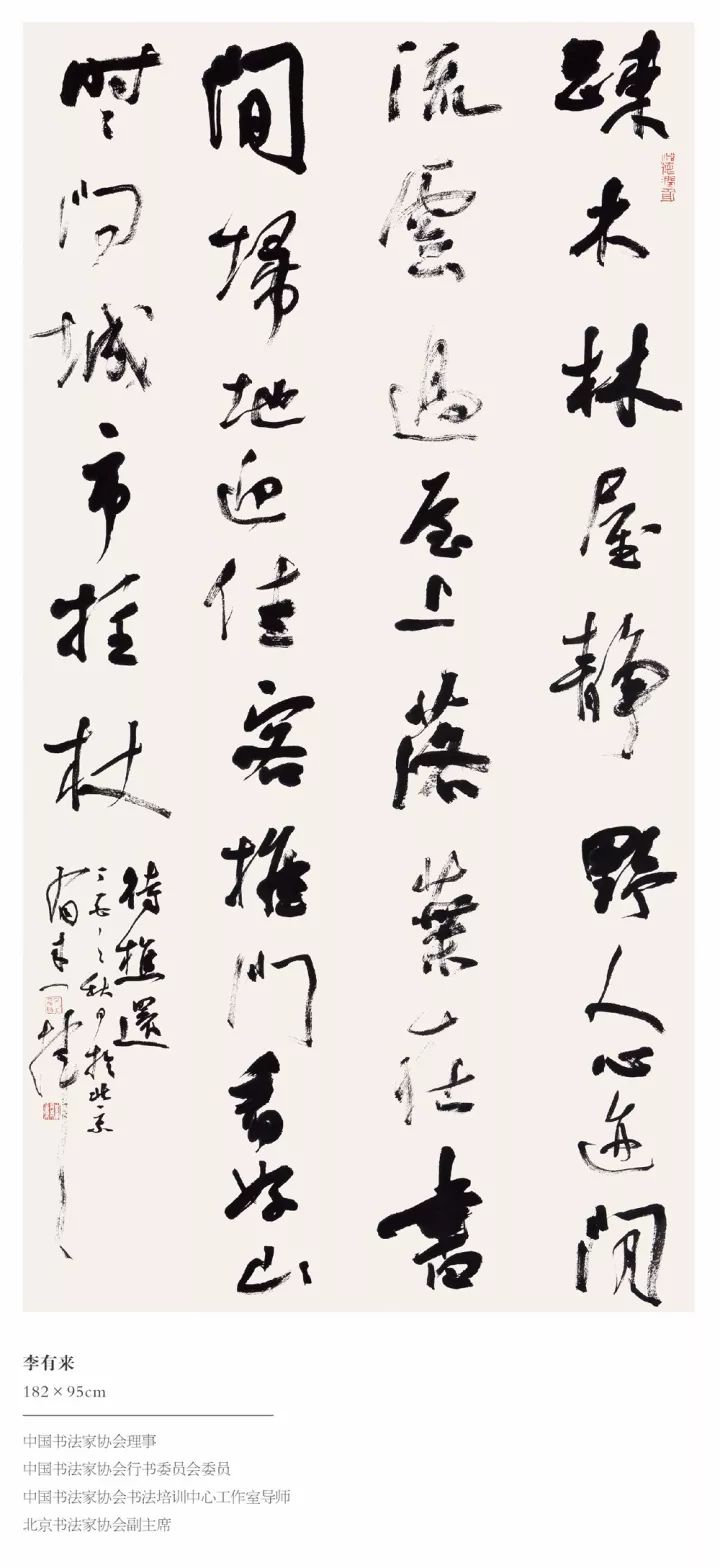 踈木林屋静野人心迹閒
流雲過屋上落葉在書
間埽地迎佳客推門看好山
时々门城市拄杖
待樵還
丁酉之秋日於北京
有来
李有来
182×95cm
中国书法家协会理事
中国书法家协会行书委员会委员
中国书法家协会书法培训中心工作室导师
北京书法家协会副主席